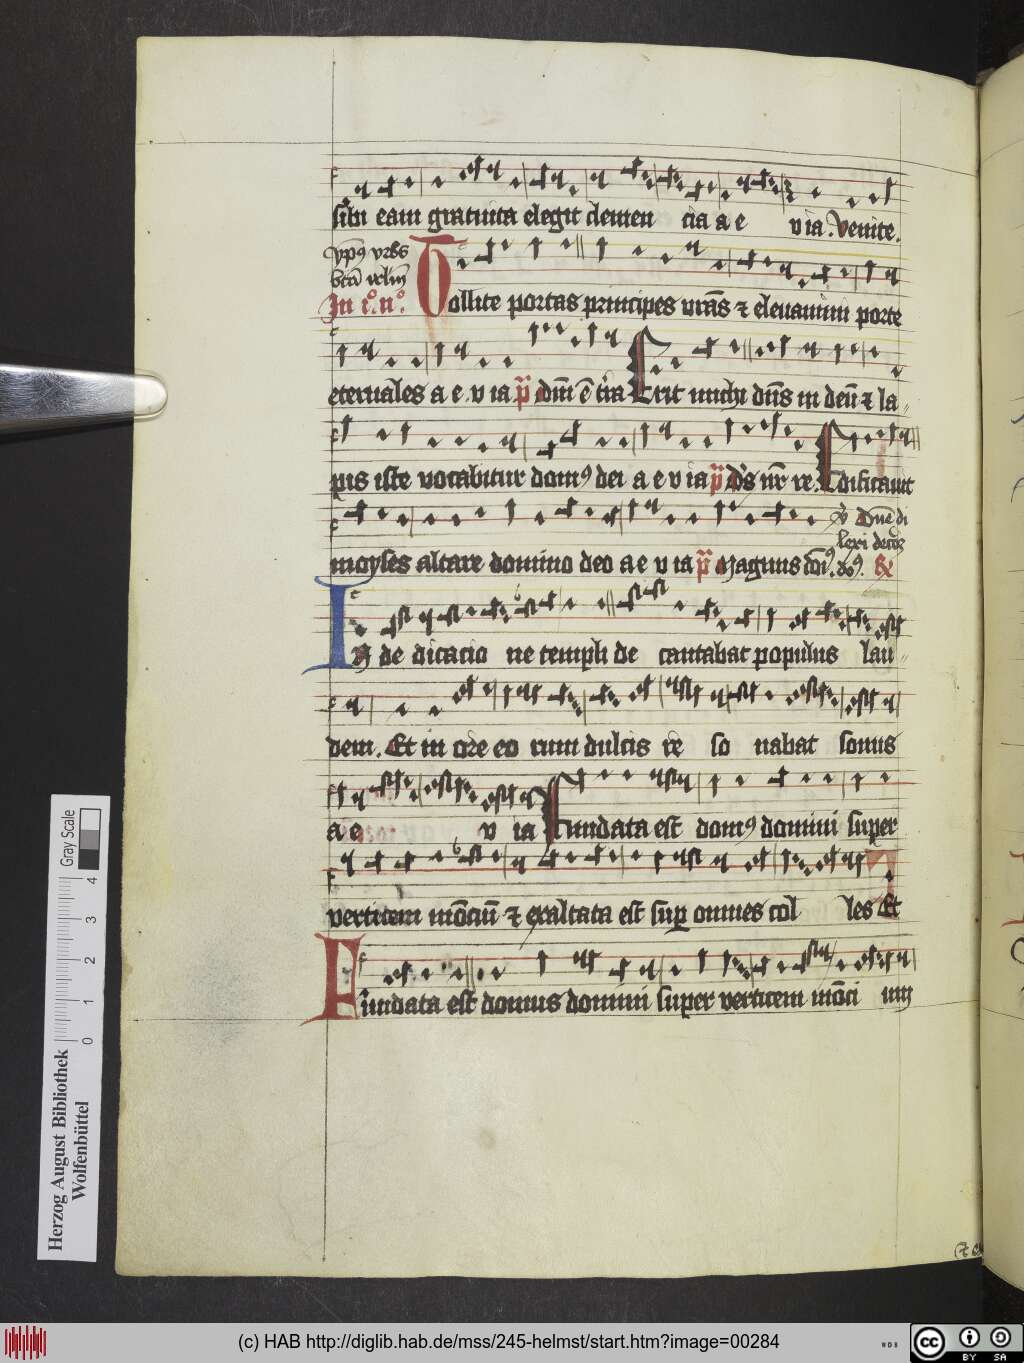 sibi eam gratuita elegit clemen cia a e v ia. Venite.
In i.º n.º
Tollite portas principes vras̄ ⁊ elevamini porte
eternales a e v ia p̄ Dm̄i ē t̄ra Erit michi dn̄s in deū ⁊ la
pis iste vocabitur domꝰ dei a e v ia p̄ D's nr̄ re. Edificavit
moyses altare domino deo a e v ia p̄ Magnus
In de dicacio ne templi de cantabat populus lau
dem. Et in ore eo rum dulcis re so nabat sonus
a e v ia Fundata est domꝰ domini super
verticem mōciū ⁊ exaltata est sup omnes col les Et
Fundata est domus domini super verticem mōci um
Gray Scale
0 1 2 3 4
Herzog August Bibliothek
Wolfenbüttel
(c) HAB http://diglib.hab.de/mss/245-helmst/start.htm?image=00284
WDB
cc
BY SA